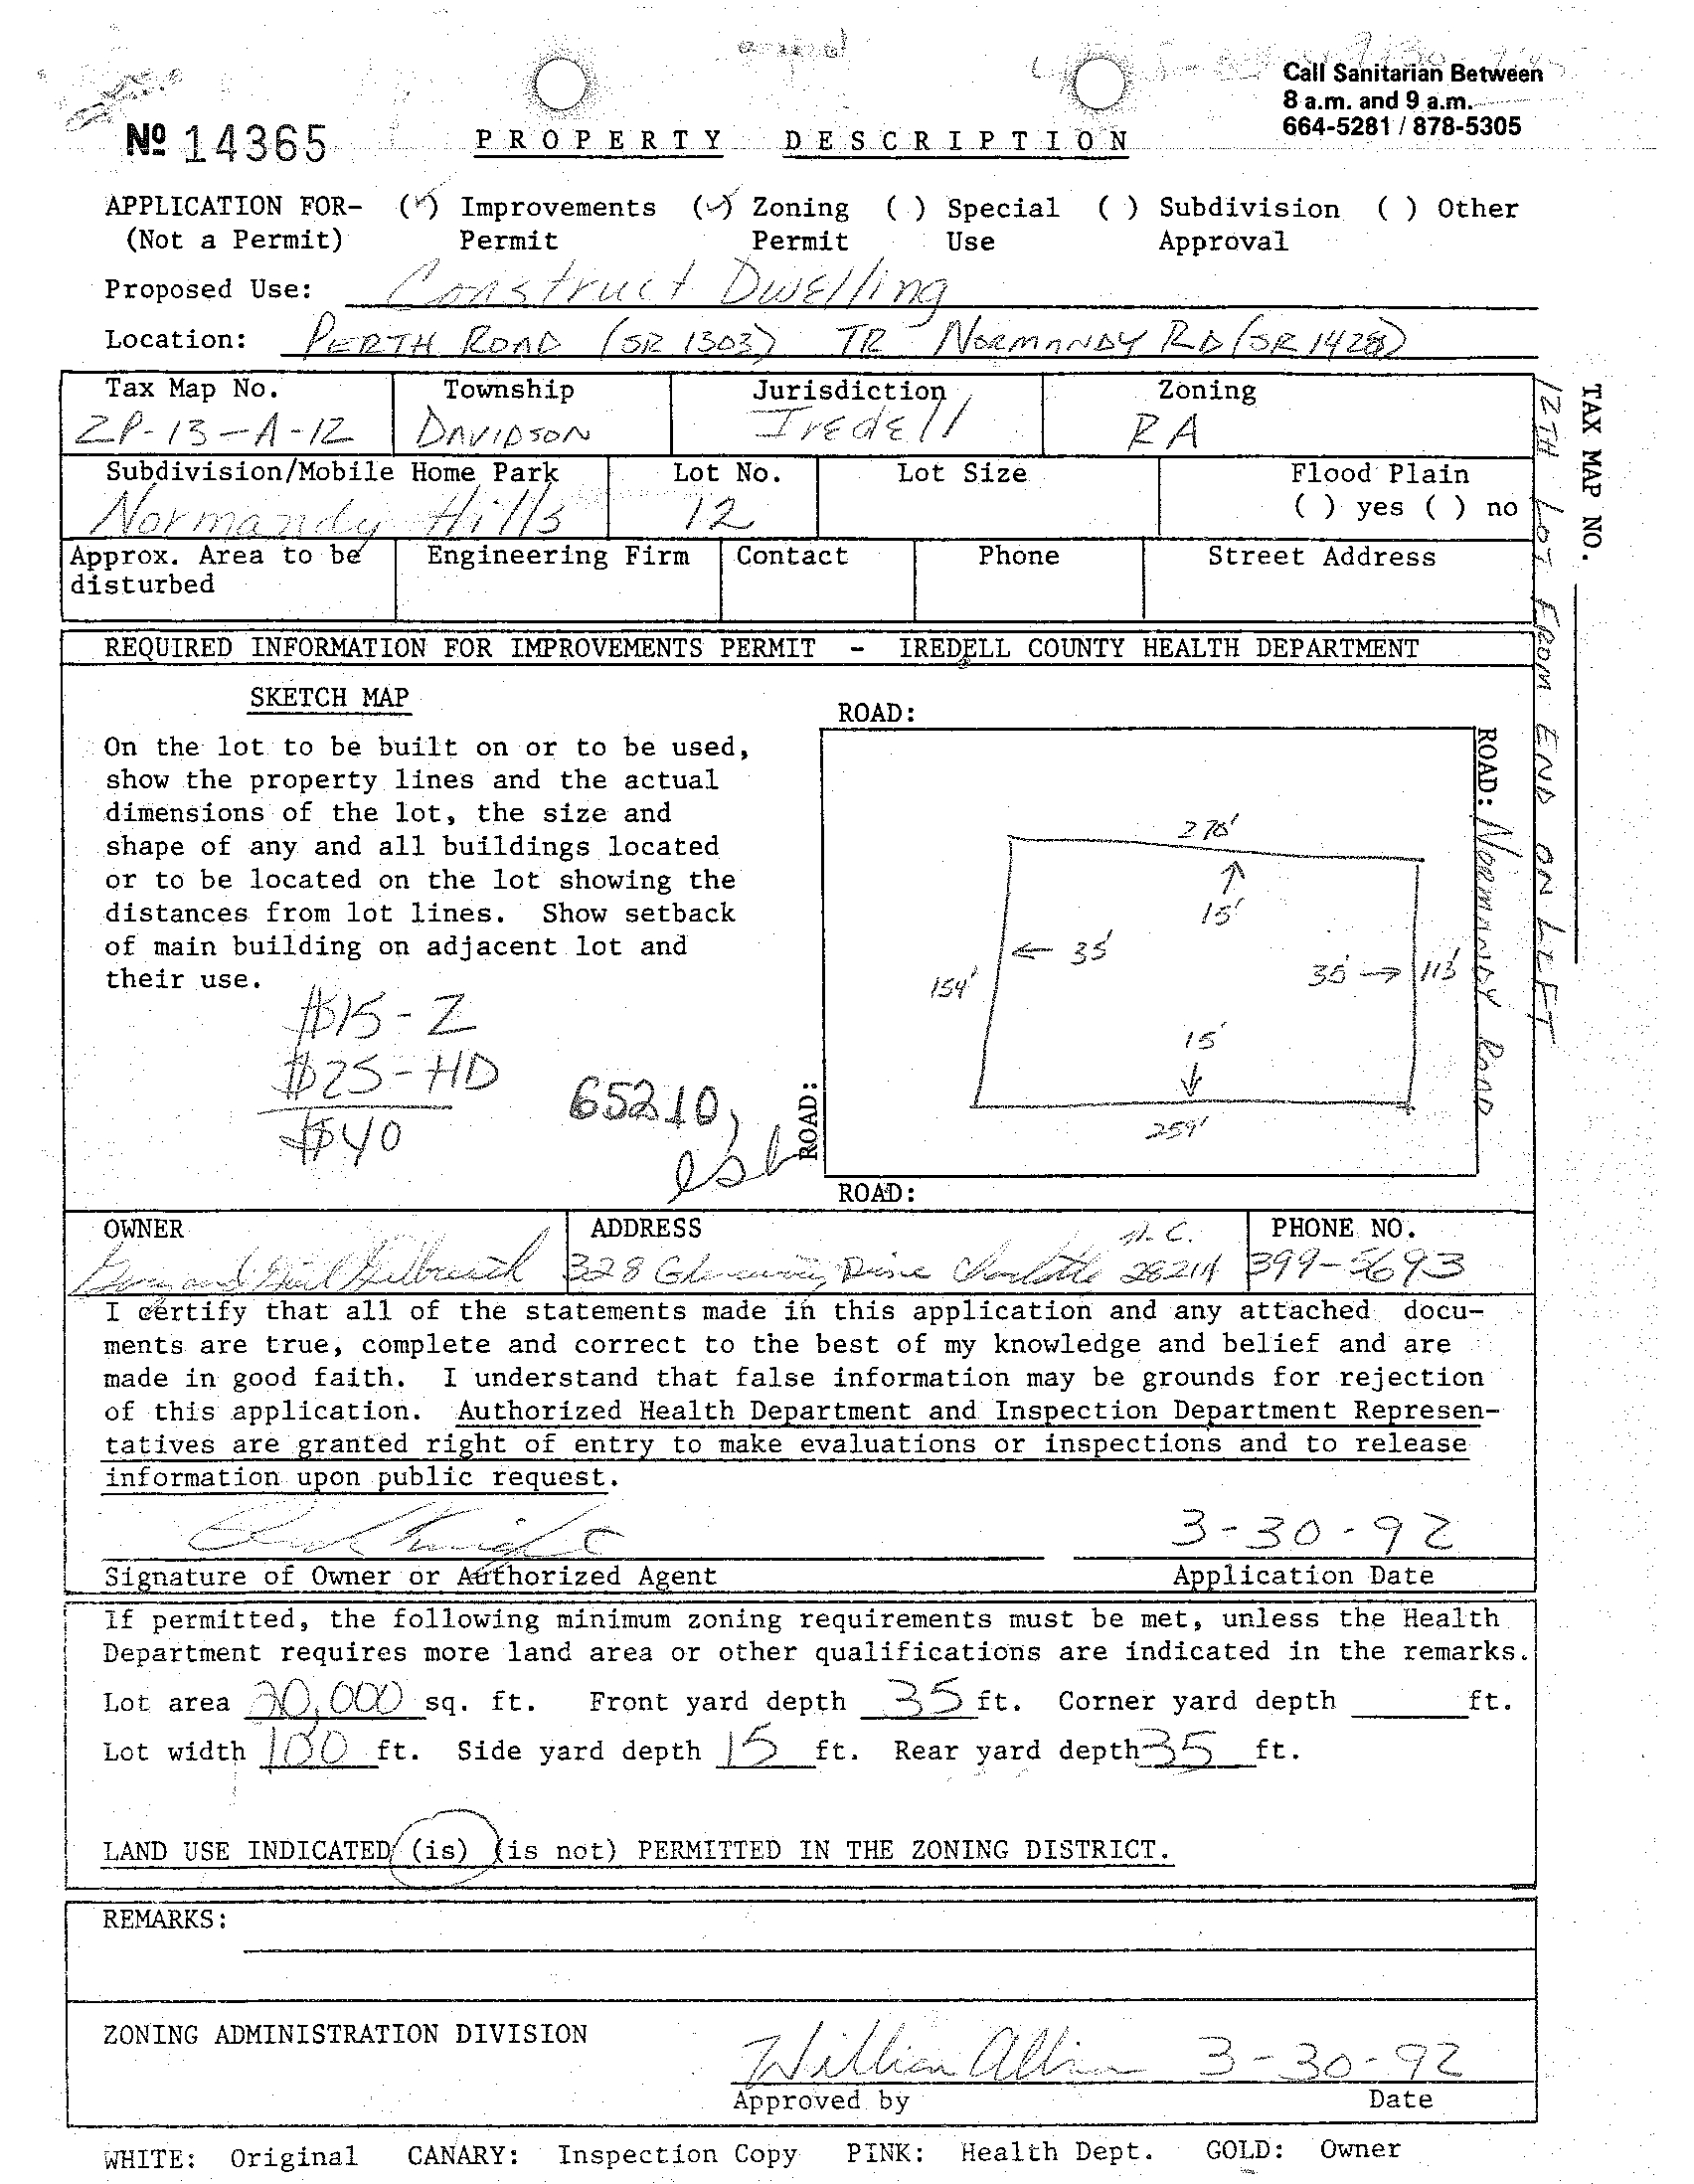 Call Sanitarian Between
8 a.m. and 9 a.m.
664-5281 / 878-5305
Nº 14365
PROPERTY DESCRIPTION
APPLICATION FOR- (✓) Improvements (✓) Zoning ( ) Special ( ) Subdivision ( ) Other
(Not a Permit) Permit Permit Use Approval
Proposed Use: Construct Dwelling
Location: PERTH ROAD (SR 1303) TR NORMANDY RD (SR 1428)
Tax Map No. Township Jurisdiction Zoning
2P-13-A-12 DAVIDSON Iredell RA
Subdivision/Mobile Home Park Lot No. Lot Size Flood Plain
Normandy Hills 12 ( ) yes ( ) no
Approx. Area to be disturbed Engineering Firm Contact Phone Street Address
TAX MAP NO.
12TH LOT FROM END ON LEFT
REQUIRED INFORMATION FOR IMPROVEMENTS PERMIT - IREDELL COUNTY HEALTH DEPARTMENT
SKETCH MAP
On the lot to be built on or to be used,
show the property lines and the actual
dimensions of the lot, the size and
shape of any and all buildings located
or to be located on the lot showing the
distances from lot lines. Show setback
of main building on adjacent lot and
their use.
$15-Z
$25-HD
$40
65210,
esb
ROAD:
ROAD: NORMANDY ROAD
270'
↑
15'
← 35'
35' →
113'
154'
15'
↓
259'
ROAD:
ROAD:
OWNER ADDRESS PHONE NO.
328 Drive Charlotte N.C. 28214 399-5693
I certify that all of the statements made in this application and any attached docu-
ments are true, complete and correct to the best of my knowledge and belief and are
made in good faith. I understand that false information may be grounds for rejection
of this application. Authorized Health Department and Inspection Department Represen-
tatives are granted right of entry to make evaluations or inspections and to release
information upon public request.
3-30-92
Signature of Owner or Authorized Agent Application Date
If permitted, the following minimum zoning requirements must be met, unless the Health
Department requires more land area or other qualifications are indicated in the remarks.
Lot area 20,000 sq. ft. Front yard depth 35 ft. Corner yard depth ft.
Lot width 100 ft. Side yard depth 15 ft. Rear yard depth 35 ft.
LAND USE INDICATED (is) (is not) PERMITTED IN THE ZONING DISTRICT.
REMARKS:
ZONING ADMINISTRATION DIVISION
William 3-30-92
Approved by Date
WHITE: Original CANARY: Inspection Copy PINK: Health Dept. GOLD: Owner